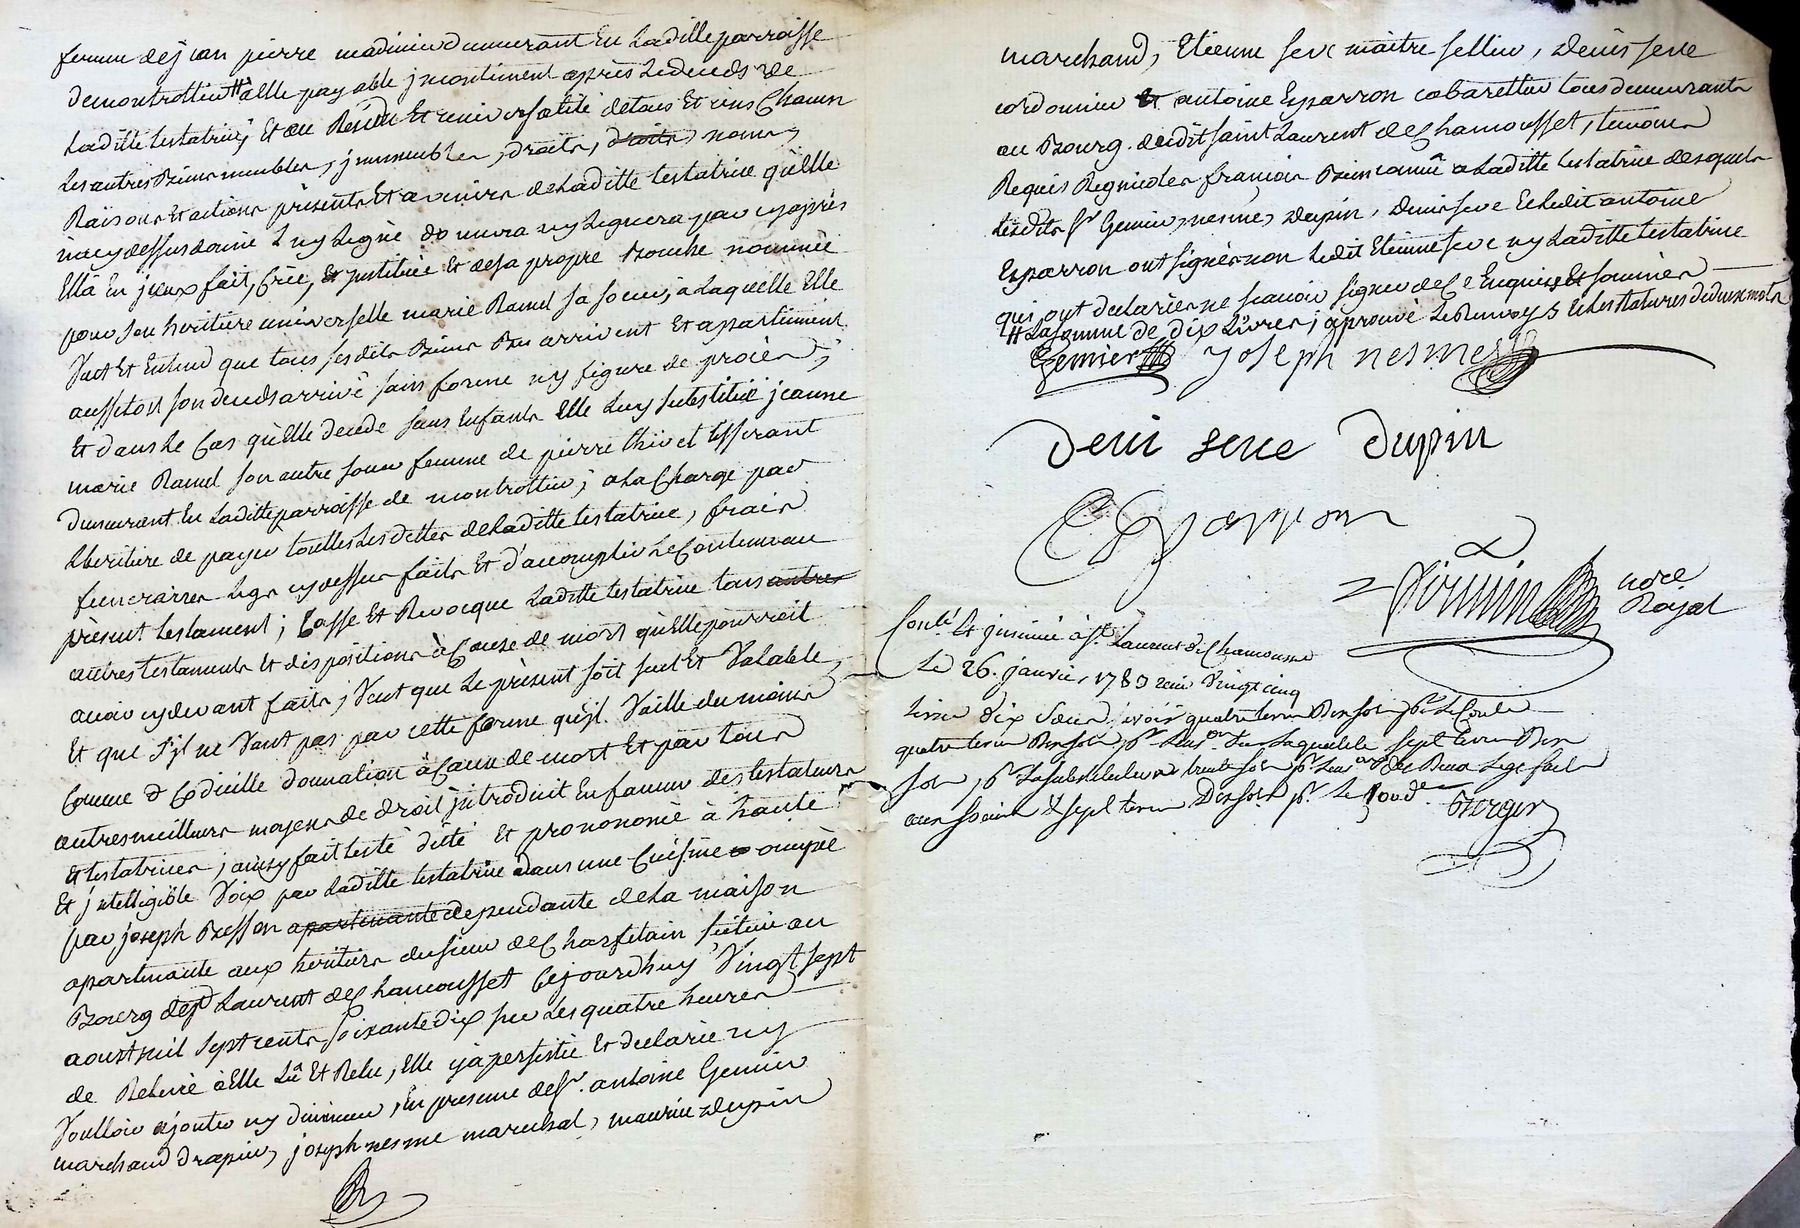 femme de jean pierre madinier demeurant En Laditte parroisse
demontrottier # àElle payable jncontinent après Ledecés de
Laditte testatrice, Et au Residu Et universalité detous Et uns Chacun
Les autres Biens meubles, jmmeubles, droits, droits, noms,
Raisons Et actions présents Et avenirs deLaditte testatrice qu'elle
n'a cydessus donné Ny Legué donnera ny Leguera par cyaprès
Ella En jceux fait, Créé, Et jnstituée Et desa propre Bouche nommée
pour Son heritiere universelle marie Ramel Sa Soeur, à Laquelle Elle
Veut Et Entend que tous Sesdits Biens Bens arrivent Et apartiennent
aussitost Son deceds arrivé Sans forme ny figure de procès;
Et dans Le Cas qu'elle decede Sans Enfants Elle Luy Substitue jeanne
marie Ramel Son autre Soeur femme de pierre Tisserant
demeurant En Laditte parroisse de montrottier; a La Charge par
L'heritiere de payer touttes Les dettes deLaditte testatrice, frais
funeraires Legs cydessus faits Et d'accomplir Le Contenu au
présent testament; Casse Et Revocque Laditte testatrice tous autres
autres testaments Et dispositions à Cause de mort qu'elle pourroit
avoir cydevant faits; Veut que Le présent Soit Seul Et Valable,
Et que S'jl ne Vaut pas par cette forme qu'jl Vaille du moins
Comme Codicille donnation à Cause de mort Et par tous
autres meilleurs moyens de droit jntroduit En faveur des testateurs
Et testatrices; ainsy fait testé dité Et prononcé à haute
Et jntelligible Voix par Laditte testatrice dans une Cuisine occupée
par joseph Bresson apartenante dependante de La maison
apartenante aux heritiers dusieur de Charfetain Située au
Bourg de St Laurent de Chamousset Cejourdhuy Vingt Sept
aoust mil Sept cents Soixante dix Sur Les quatre heures
de Relevé à Elle Lû Et Relu, Elle y a persistée Et declarée ny
Voulloir ajouter ny diminuer, En presence de Sr. antoine Gemier
marchand drapier, joseph nesme marechal, maurice Dupin
marchand, Etienne Seve maitre Sellier, denis Seve
cordonnier Et antoine Esparron cabarettier tous demeurants
au Bourg dudit Saint Laurent de Chamousset, temoins
Requis Regnicoles francois Bien connû a Laditte testatrice desquels
Lesdits Sr Gemier, nesme, Dupin, denis Seve Et Ledit antoine
Esparron ont Signé non Ledit Etienne Seve ny Laditte testatrice
qui ont declarée ne Scavoir Signer de Ce Enquis Et Sommés
# La Somme de dix Livres; aprouvé Le Renvoy & Les Ratures de deux mots
Gemier joseph nesme
deni seve Dupin
Esparron
Firmin nore
Royal
Conlé Et jnsinué à St. Laurent de Chamousset
Le 26. janvier 1783 reçu Vingt cinq
Livres dix Sols Scavoir quatre Livres Dix Sols pr Le Conle
quatre Livres Dix Sols pr Lins.on Sept Livres Dix
Sols pr La Substitution trente Sols pr Lins.on des Deux Legs faits
Sept Livres Dix Sols pr Le fond
Berger